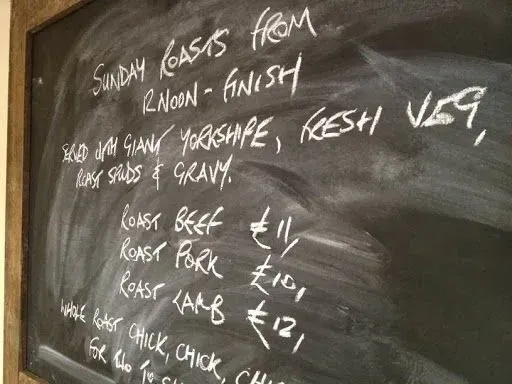 SUNDAY ROASTS FROM
12NOON - FINISH
SERVED WITH GIANT YORKSHIRE, FRESH VEG,
ROAST SPUDS & GRAVY.
ROAST BEEF £11,
ROAST PORK £10,
ROAST LAMB £12,
WHOLE ROAST CHICK, CHICK, CHICK
FOR TWO TO